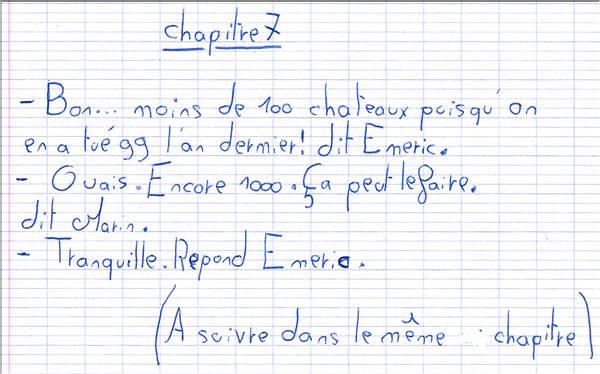 chapitre 7
- Bon... moins de 100 chateaux puisqu'on
en a tué 99 l'an dermier! dit Emeric.
- Ouais. Encore 1000. Ça peut le faire.
dit Marin.
- Tranquille. Repond Emeric.
(A suivre dans le même chapitre)